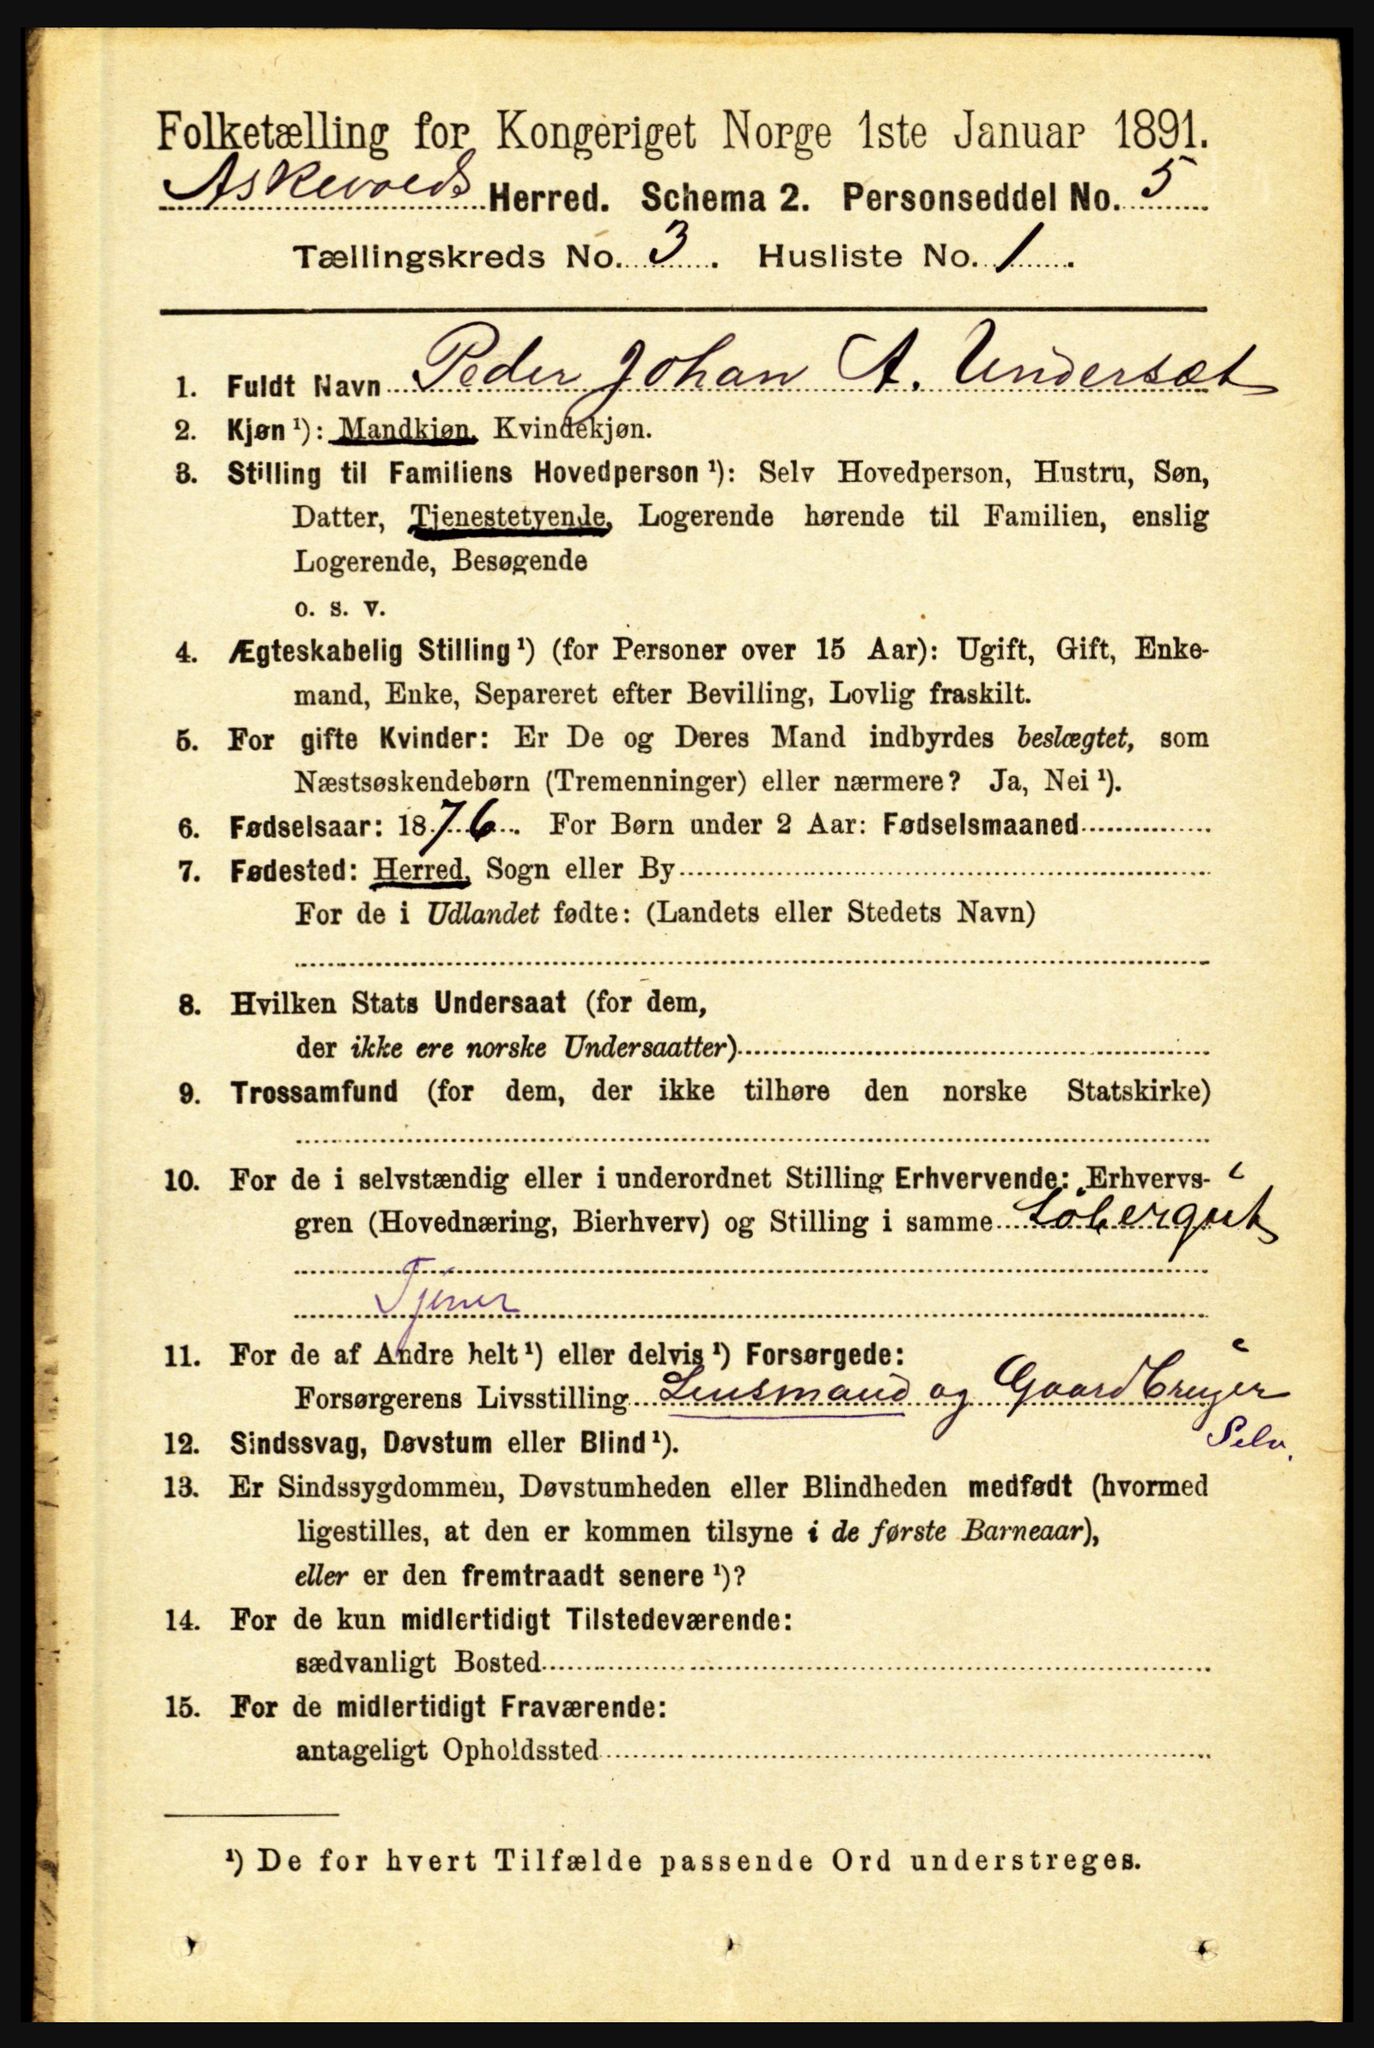 Folketælling for Kongeriget Norge 1ste Januar 1891.
Askevolds Herred. Schema 2. Personseddel No. 5
Tællingskreds No. 3. Husliste No. 1.
1. Fuldt Navn Peder Johan A. Undersæt
2. Kjøn ¹): Mandkjøn, Kvindekjøn.
3. Stilling til Familiens Hovedperson ¹): Selv Hovedperson, Hustru, Søn,
Datter, Tjenestetyende, Logerende hørende til Familien, enslig
Logerende, Besøgende
o. s. v.
4. Ægteskabelig Stilling ¹) (for Personer over 15 Aar): Ugift, Gift, Enke-
mand, Enke, Separeret efter Bevilling, Lovlig fraskilt.
5. For gifte Kvinder: Er De og Deres Mand indbyrdes beslægtet, som
Næstsøskendebørn (Tremenninger) eller nærmere? Ja, Nei ¹).
6. Fødselsaar: 1876. For Børn under 2 Aar: Fødselsmaaned
7. Fødested: Herred, Sogn eller By
For de i Udlandet fødte: (Landets eller Stedets Navn)
8. Hvilken Stats Undersaat (for dem,
der ikke ere norske Undersaatter)
9. Trossamfund (for dem, der ikke tilhøre den norske Statskirke)
10. For de i selvstændig eller i underordnet Stilling Erhvervende: Erhvervs-
gren (Hovednæring, Bierhverv) og Stilling i samme Löbergut
Tjener
11. For de af Andre helt ¹) eller delvis ¹) Forsørgede:
Forsørgerens Livsstilling Lensmand og Gaardbruger
Selv.
12. Sindssvag, Døvstum eller Blind ¹).
13. Er Sindssygdommen, Døvstumheden eller Blindheden medfødt (hvormed
ligestilles, at den er kommen tilsyne i de første Barneaar),
eller er den fremtraadt senere ¹)?
14. For de kun midlertidigt Tilstedeværende:
sædvanligt Bosted
15. For de midlertidigt Fraværende:
antageligt Opholdssted
¹) De for hvert Tilfælde passende Ord understreges.